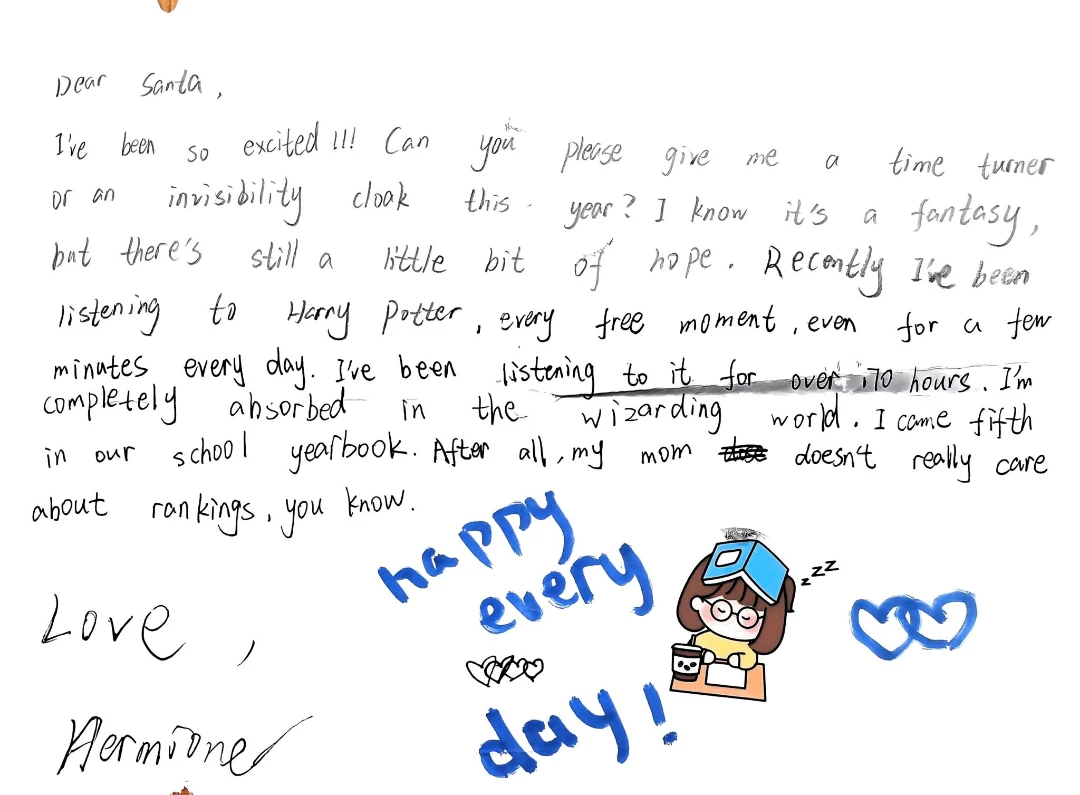 Dear Santa,
I've been so excited!!! Can you please give me a time turner
or an invisibility cloak this year? I know it's a fantasy,
but there's still a little bit of hope. Recently I've been
listening to Harry Potter, every free moment, even for a few
minutes every day. I've been listening to it for over 170 hours. I'm
completely absorbed in the wizarding world. I came fifth
in our school yearbook. After all, my mom doesn't really care
about rankings, you know.
happy
every
day!
zzz
Love,
Hermione